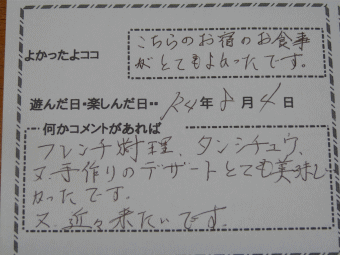 よかったよココ
こちらのお宿のお食事
がとてもよかったです。
遊んだ日・楽しんだ日・・R4年8月4日
何かコメントがあれば
フレンチ料理、タンシチュウ、
又、手作りのデザートとても美味し
かったです。
又、近々来たいです。